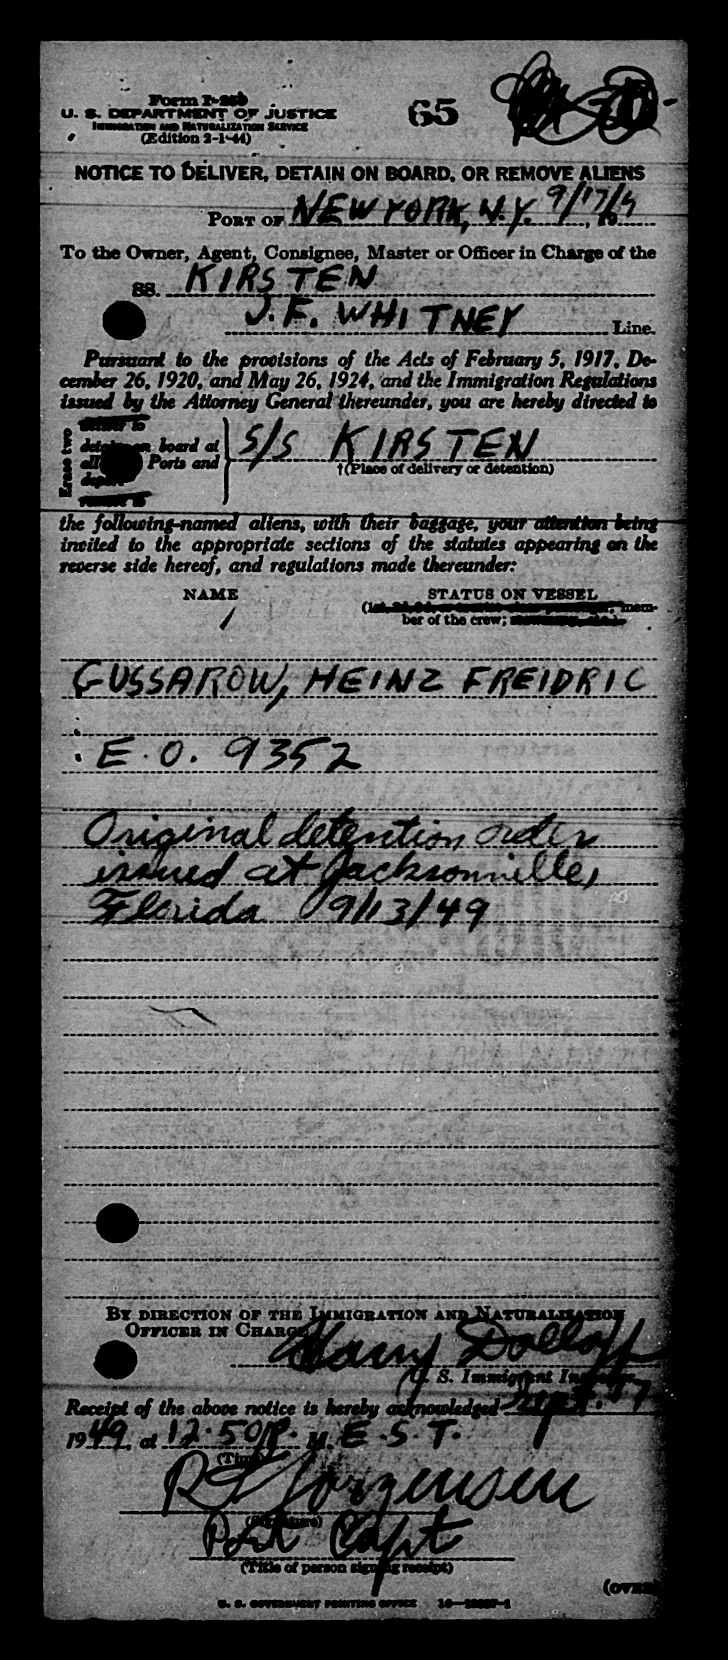 Form I-259
65
U. S. DEPARTMENT OF JUSTICE
IMMIGRATION AND NATURALIZATION SERVICE
(Edition 2-1-44)
NOTICE TO DELIVER, DETAIN ON BOARD, OR REMOVE ALIENS
PORT OF NEW YORK, N.Y. 9/17/
To the Owner, Agent, Consignee, Master or Officer in Charge of the
SS. KIRSTEN
J. F. WHITNEY Line.
Pursuant to the provisions of the Acts of February 5, 1917, De-
cember 26, 1920, and May 26, 1924, and the Immigration Regulations
issued by the Attorney General thereunder, you are hereby directed to
Erase two
deliver to
detain on board at
all Ports and
remove to
S/S KIRSTEN
†(Place of delivery or detention)
the following-named aliens, with their baggage, your attention being
invited to the appropriate sections of the statutes appearing on the
reverse side hereof, and regulations made thereunder:
NAME STATUS ON VESSEL
mem-
ber of the crew;
GUSSAROW, HEINZ FREIDRIC
E.O. 9352
Original detention order
issued at Jacksonville,
Florida 9/13/49
BY DIRECTION OF THE IMMIGRATION AND NATURALIZATION
OFFICER IN CHARGE
Harry Dolloff
U. S. Immigrant Inspector.
Receipt of the above notice is hereby acknowledged Sept. 17
1949, at 12:50 P. M. E.S.T.
(Time)
Jorgensen
(Signature)
Port Capt
(Title of person signing receipt)
(OVER)
U. S. GOVERNMENT PRINTING OFFICE